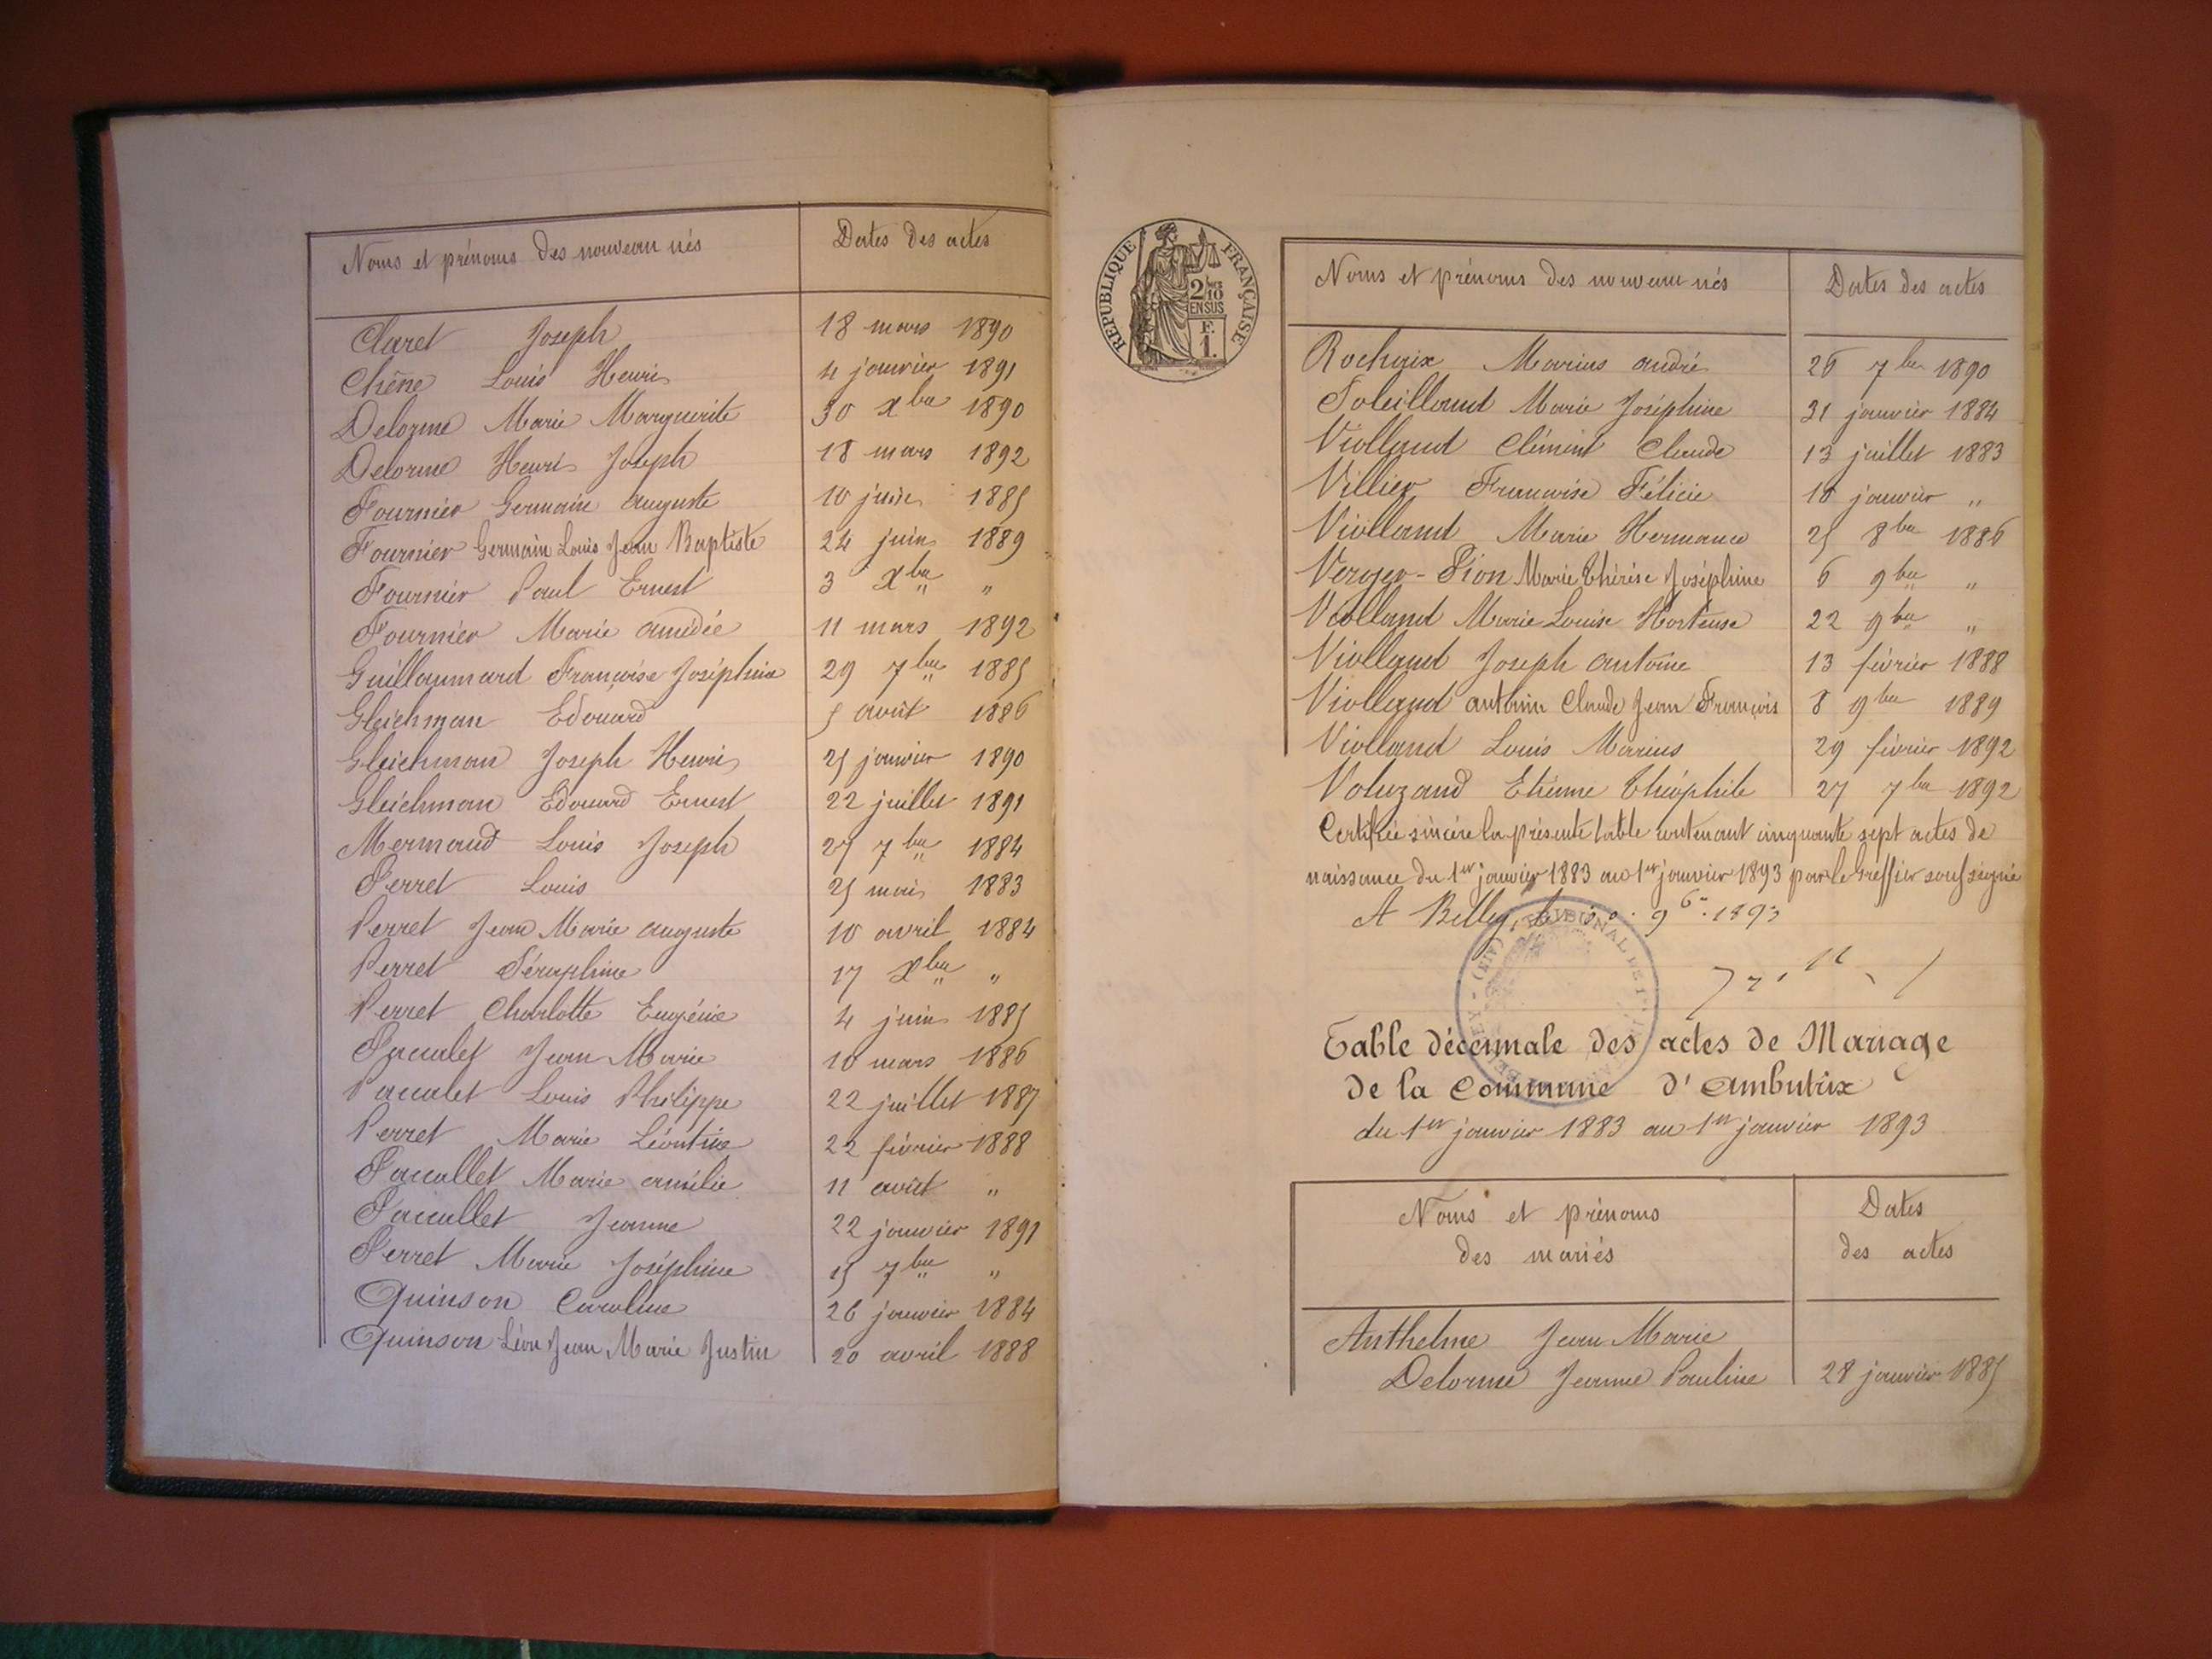 Noms et prénoms des nouveau nés Dates des actes
Claret Joseph 18 mars 1890
Chêne Louis Henri 4 janvier 1891
Delorme Marie Marguerite 30 Xbre 1890
Delorme Henri Joseph 18 mars 1892
Fournier Germain Auguste 10 juin 1885
Fournier Germain Louis Jean Baptiste 24 juin 1889
Fournier Paul Ernest 3 Xbre "
Fournier Marie Amédée 11 mars 1892
Guillaumard Françoise Joséphine 29 7bre 1885
Gleichman Edouard 5 août 1886
Gleichman Joseph Henri 25 janvier 1890
Gleichman Edouard Ernest 22 juillet 1891
Mermand Louis Joseph 27 7bre 1884
Perret Louis 25 mai 1883
Perret Jean Marie Auguste 10 avril 1884
Perret Séraphine 17 Xbre "
Perret Charlotte Eugénie 4 juin 1885
Paccalet Jean Marie 10 mars 1886
Paccalet Louis Philippe 22 juillet 1887
Perret Marie Léontine 22 février 1888
Paccallet Marie Amélie 11 août "
Paccallet Jeanne 22 janvier 1891
Perret Marie Joséphine 15 7bre "
Quinson Caroline 26 janvier 1884
Quinson Léon Jean Marie Justin 20 avril 1888
REPUBLIQUE FRANÇAISE
2/10
EN SUS
F.
1.
Noms et prénoms des nouveau nés Dates des actes
Rochaix Marius André 26 7bre 1890
Soleilland Marie Joséphine 31 janvier 1884
Violland Clément Claude 13 juillet 1883
Villier Françoise Félicie 10 janvier "
Violland Marie Hermance 25 8bre 1886
Verger-Pion Marie Thérèse Joséphine 6 9bre "
Violland Marie Louise Hortense 22 9bre "
Violland Joseph Antoine 13 février 1888
Violland Anthim Claude Jean François 8 9bre 1889
Violland Louis Marius 29 février 1892
Voluzand Etienne Théophile 27 7bre 1892
Certifiée sincère la présente table contenant cinquante sept actes de
naissance du 1er janvier 1883 au 1er janvier 1893 par le Greffier soussigné
A Belley, le 9bre 1893
TRIBUNAL DE
BELLEY (AIN)
Table décennale des actes de Mariage
de la Commune d'Ambutrix
du 1er janvier 1883 au 1er janvier 1893
Noms et prénoms Dates
des mariés des actes
Anthelme Jean Marie
Delorme Jeanne Pauline 28 janvier 1885